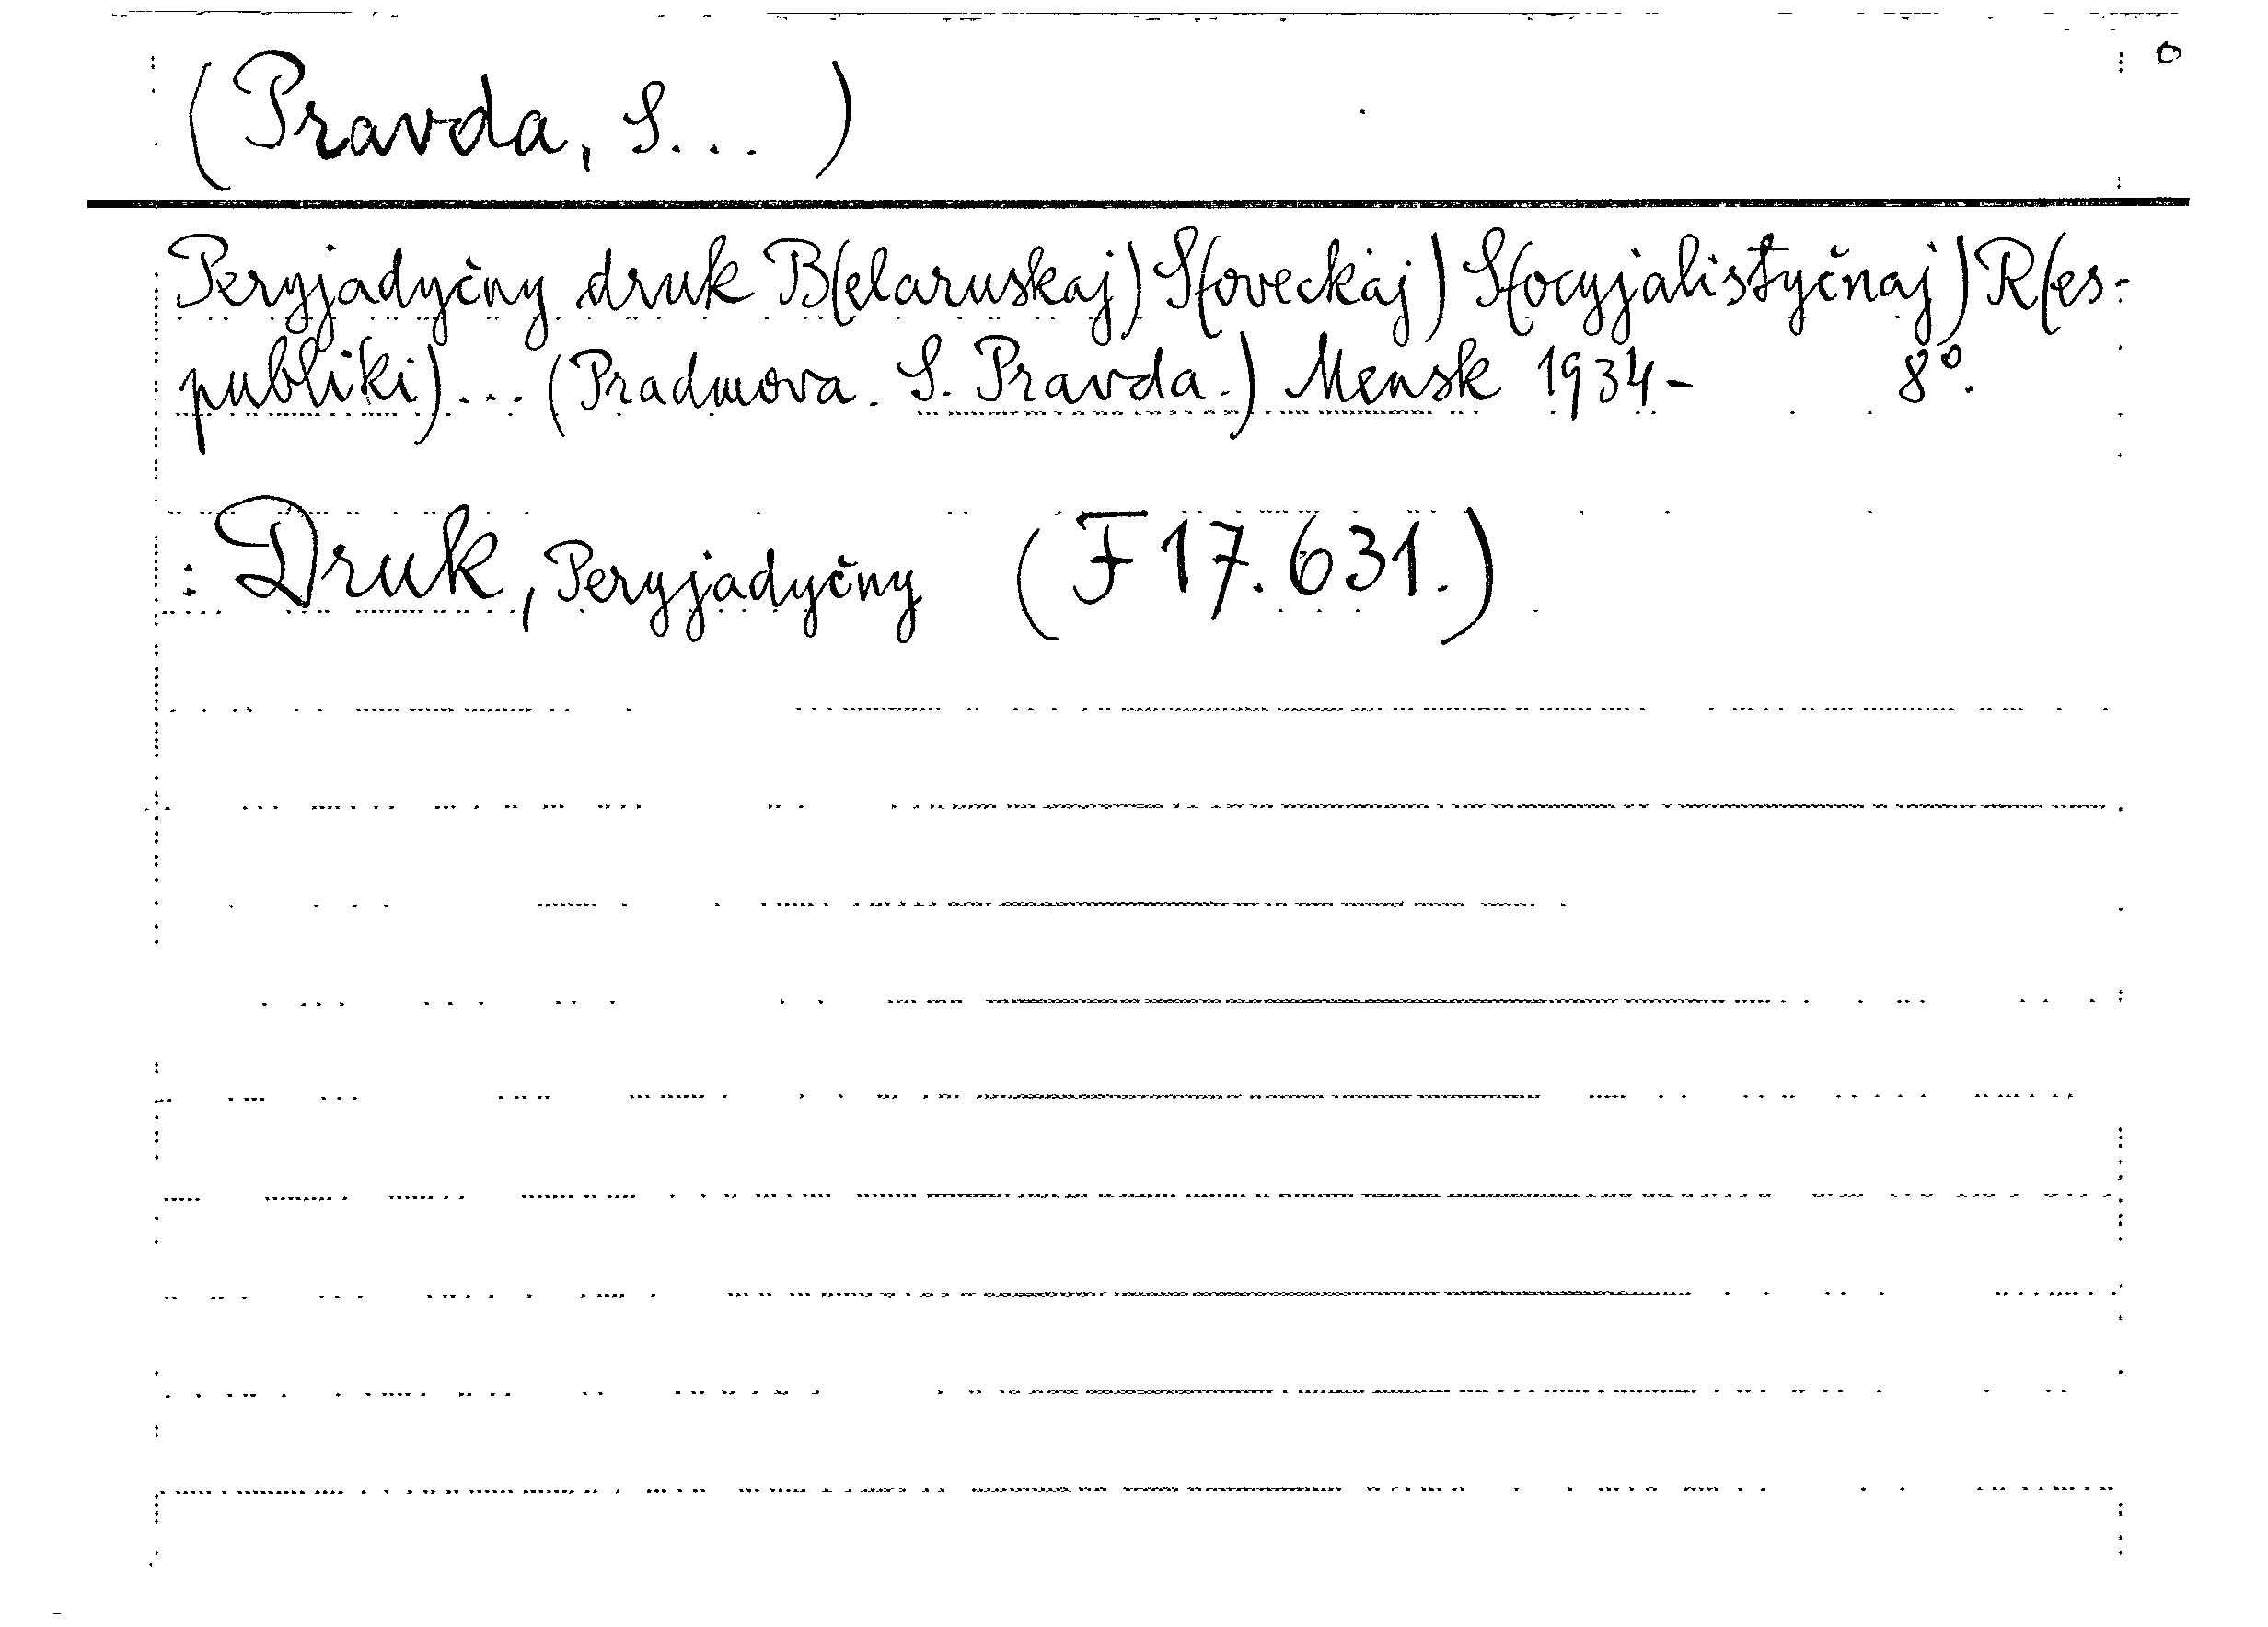 (Pravda, S... )
Peryjadyčny druk B(elaruskaj) S(oveckaj) S(ocyjalistyčnaj) R(es-
publiki)... (Pradmova. S. Pravda.) Mensk 1934- 8°.
: Druk, Peryjadyčny (F 17.631.)